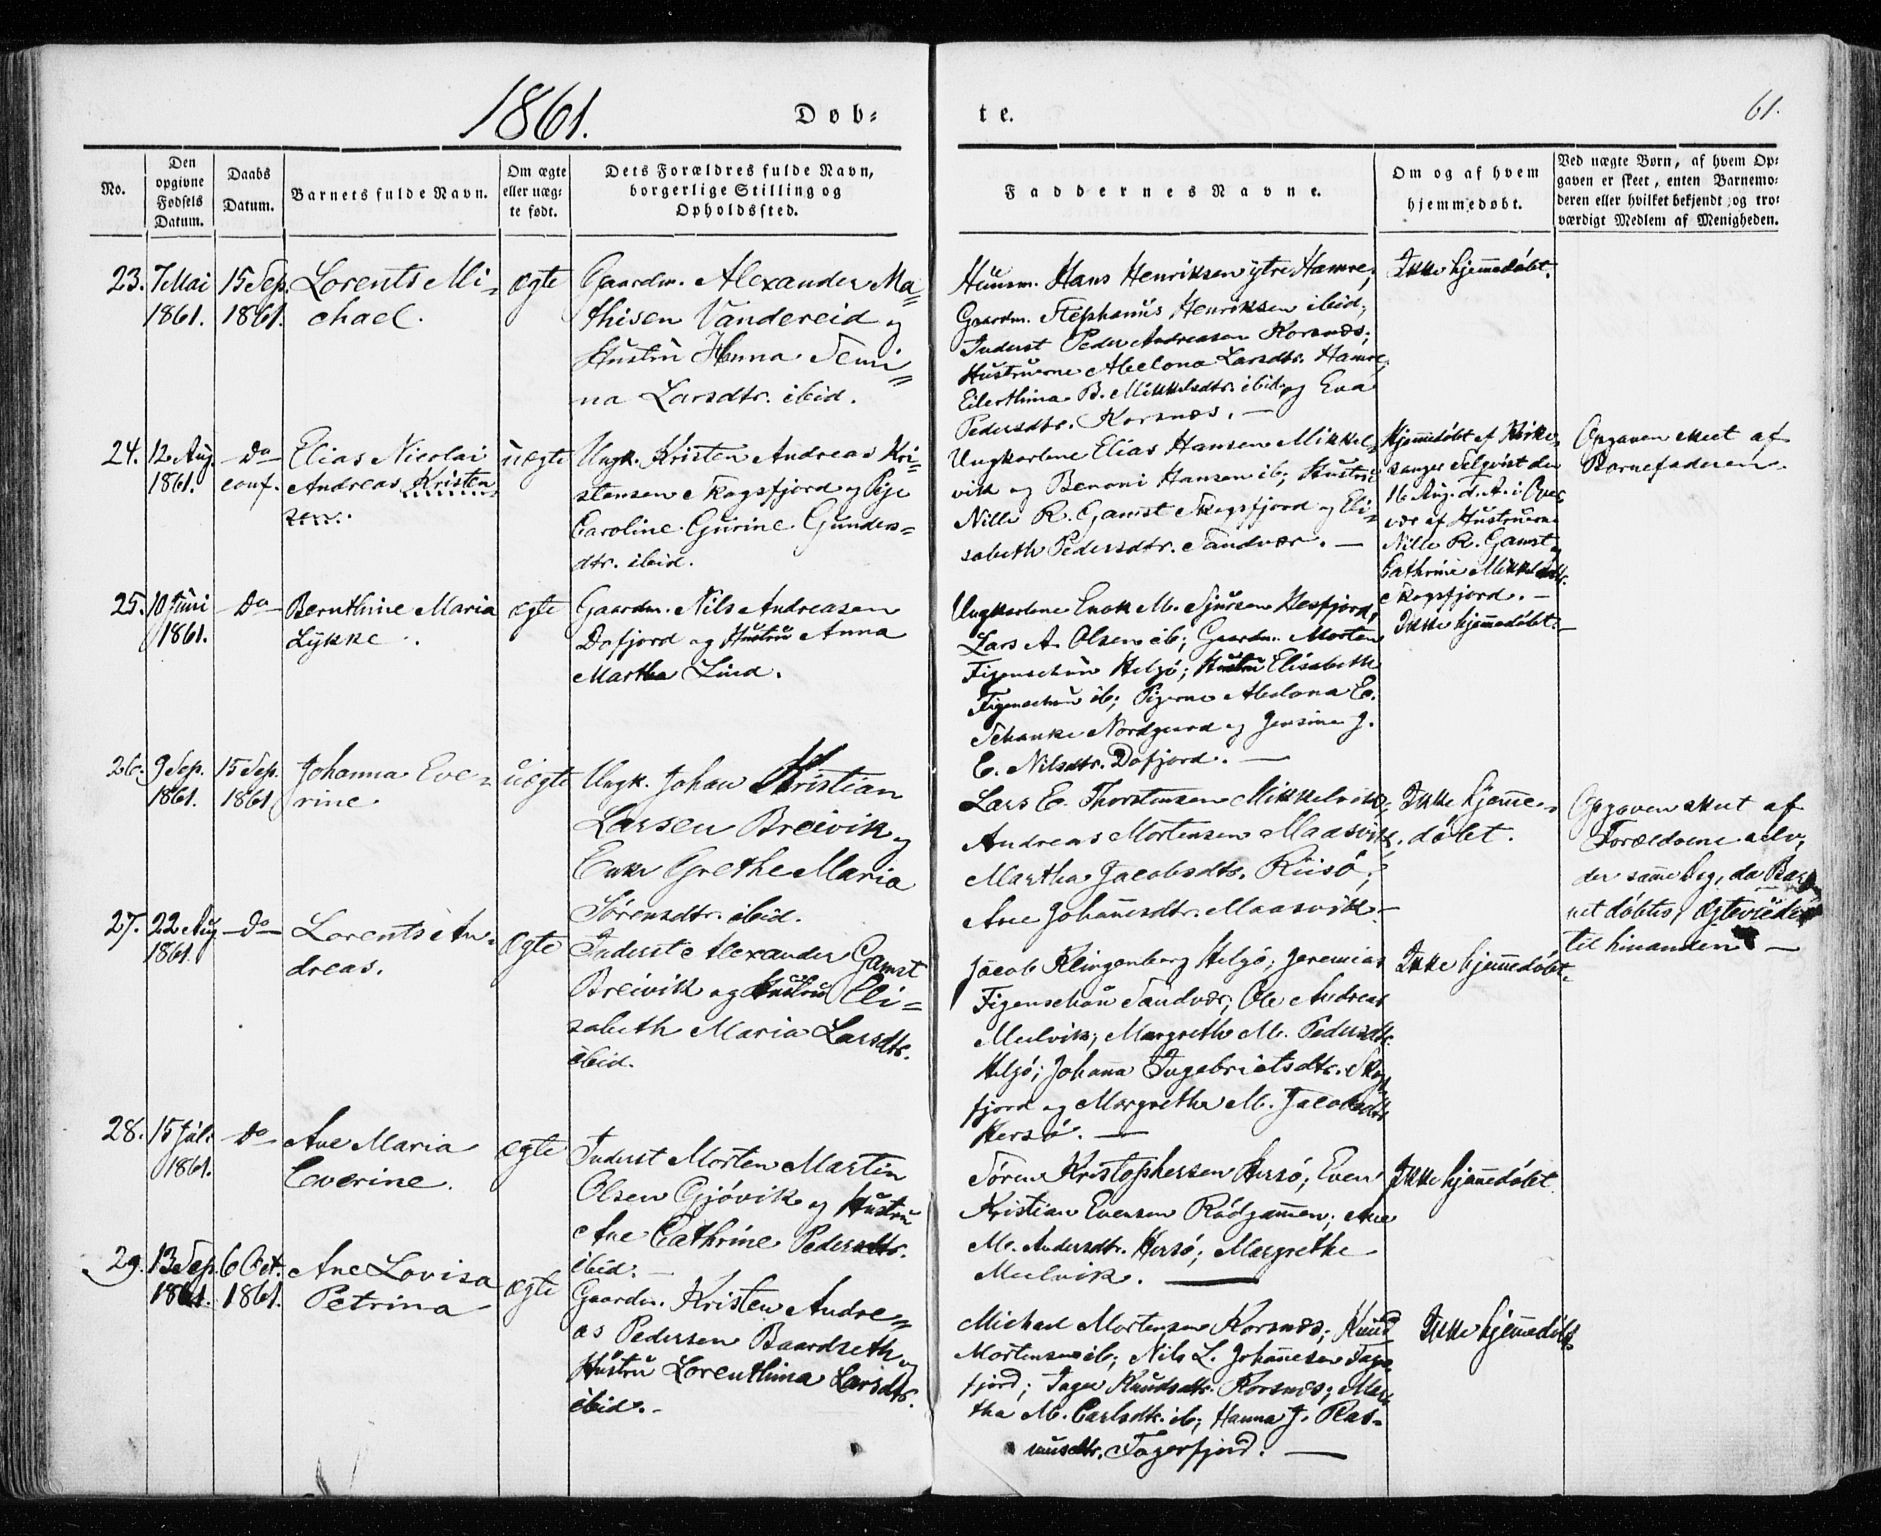 1861.
Døb-
te.
61.
No.
Den opgivne Fødsels Datum.
Daabs Datum.
Barnets fulde Navn.
Om ægte eller uæg- te født.
Dets Forældres fulde Navn, borgerlige Stilling og Opholdssted.
Faddernes Navne.
Om og af hvem hjemmedøbt.
Ved uægte Børn, af hvem Op- gaven er skeet, enten Barnemo- deren eller hvilket bekjendt og tro- værdigt Medlem af Menigheden.
23.
7 Mai
1861.
15 Sep.
1861.
Lorents Mi-
chael.
ægte
Gaardm. Alexander Ma-
thisen Vandereid og
Hustru Hanna
na Larsdtr. ibid.
Huusm. Hans Henriksen ytre Hamre,
Gaardm. Stephanus Henriksen ibid;
Inderst Peder Andreasen Korsnæs;
Hustruerne Abelona Larsdtr. Hamre,
Eilerthina B. Mikkelsdtr. ibid. og Eva
Pedersdtr. Korsnæs. —
Ikke hjemmedøbt.
24.
12 Aug.
1861.
— Do —
conf.
Elias Nicolai
Andreas Kristen
sen.
uægte
Ungk. Kristen Andreas Kri-
stensen Skogsfjord og Pige
Caroline Gurine Gunders-
dtr. ibid.
Ungkarlene Elias Hansen Mikkel-
vik og Benoni Hansen ib; Hustru
Nille R. Gamst Skogsfjord og Eli-
sabeth Pedersdtr. Sandvær. —
Hjemmedøbt af Kirke-
sanger Selqvist den
16 Aug. d. A. i Over
vær af Hustruerne
Nille R. Gamst
Cathrine Mikkelsdtr.
Skogsfjord. —
Opgaven skeet af
Barnefaderen.
25.
10 Juni
1861.
— Do —
Bernthine Maria
Lykke.
ægte
Gaardm. Nils Andreasen
Dafjord og Hustru Anna
Martha Lind.
Ungkarlene Enok M. Sjursen Hesfjord,
Lars A. Olsen ib; Gaardm. Morten
Figenschau Helgø; Hustru Elisabeth
Figenschau ib; Pigerne Abelona E.
Schanke Nordgaard og Jensine J.
E. Nilsdtr. Dafjord. —
Ikke hjemmedøbt. —
26.
9 Sep.
1861.
15 Sep.
1861
Johanna Eve-
rine
uægte
Ungk. Johan Kristian
Larsen Breivik og
Enke Grethe Maria
Sørensdtr. ibid.
Lars E. Thorstensen Mikkelvik,
Andreas Mortensen Maasvik,
Martha Jacobsdtr. Riisø;
Ane Johannesdtr. Maasvik. —
Ikke hjemme-
døbt.
Opgaven skeet af
Forældrene selv,
der samme Dag, da Bar-
net døbtes, ægteviedes
til hinanden —
27.
22 Aug
1861.
— Do —
Lorents An-
dreas.
ægte
Inderst Alexander Gamst
Breivik og Hustru Eli-
sabeth Maria Larsdtr.
ibid.
Jacob Klingenberg Helgø; Jeremias
Figenschau Sandvær; Ole Andreas
Meelvik; Margrethe M. Pedersdtr.
Helgø; Johanna Ingebrietsdtr. Skogs-
fjord og Margrethe M. Jacobsdtr.
Hersø. —
Ikke hjemmedøbt.
28.
15 Jul.
1861.
— Do —
Ane Maria
Everine.
ægte
Inderst Morten Martin
Olsen Gjøvik og Hustru
Ane Cathrine Pedersdtr.
ibid. —
Søren Kristophersen Hersø; Even
Kristian Evensen Rødgammen; Ane
M. Andersdtr. Hersø; Margrethe
Meelvik. —
Ikke hjemmedøbt.
29.
13 Sep.
1861.
6 Oct.
1861.
Ane Lovisa
Petrina
ægte
Gaardm. Kristen Andre-
as Pedersen Baardseth og
Hustru Lorenthina Larsdtr.
ibid. -
Michael Mortensen Korsnæs; Knud
Mortensen ib; Nils L. Johannesen Tager
fjord; Inger Knudsdtr. Korsnæs; Mar
tha M. Carlsdtr. ib; Hanna J. Ras-
musdtr. Tagerfjord. —
Ikke hjemmedøbt